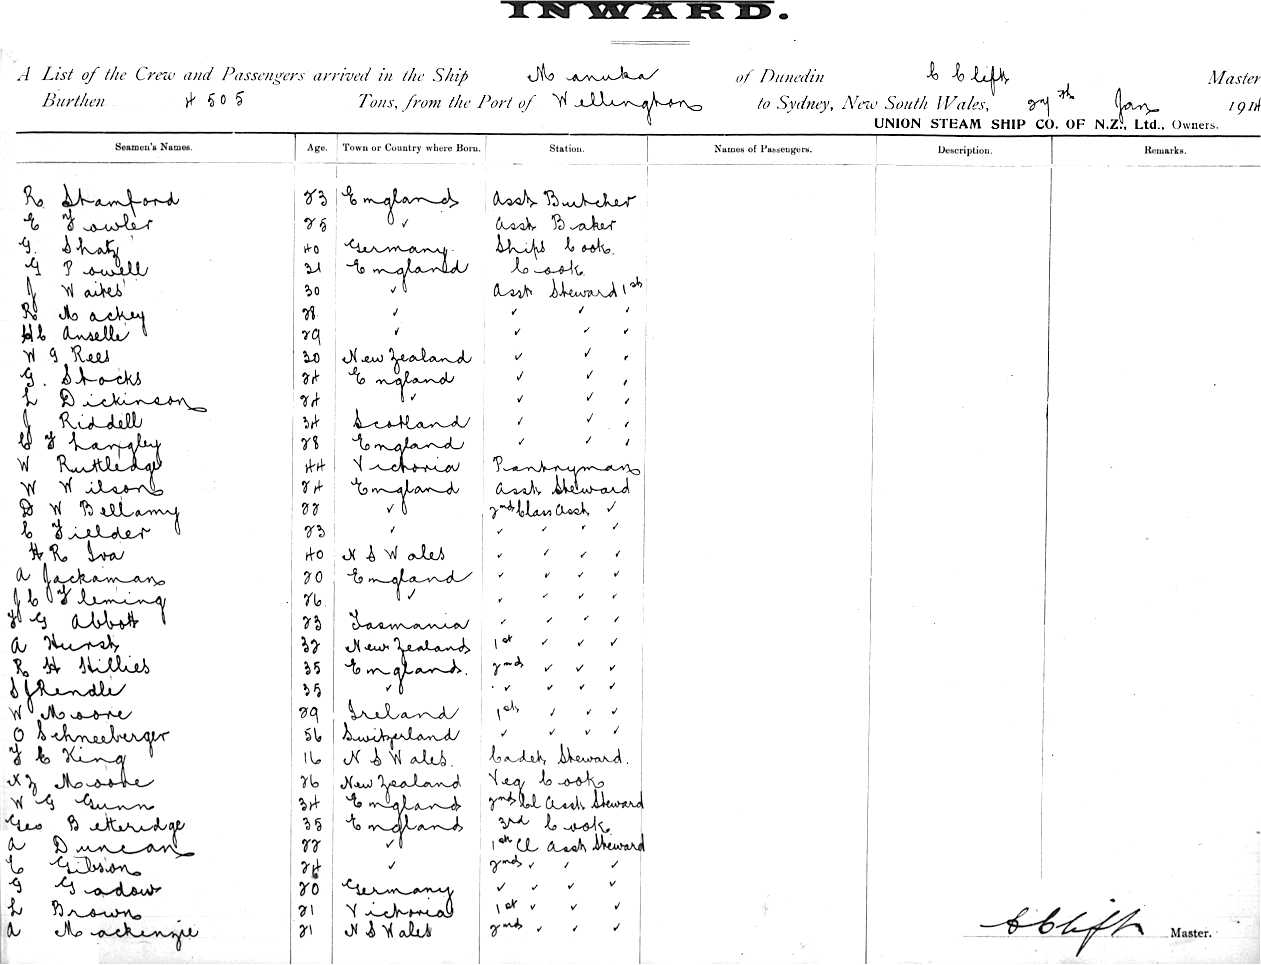 INWARD.
A List of the Crew and Passengers arrived in the Ship Manuka of Dunedin C Clift Master
Burthen 4505 Tons, from the Port of Wellington to Sydney, New South Wales, 27th Jan 1914
UNION STEAM SHIP CO. OF N.Z., Ltd., Owners.
Seamen's Names. Age. Town or Country where Born. Station. Names of Passengers. Description. Remarks.
R Stamford 23 England Asst Butcher
E Fowler 25 ✓ Asst Baker
G. Shatz 40 Germany. Ships Cook.
G Powell 31 England Cook
J Waites 30 ✓ Asst Steward 1st
R Mackey 28 ✓ ✓ ✓ ✓
HC Anselle 29 ✓ ✓ ✓ ✓
W G Rees 30 New Zealand ✓ ✓ ✓
G. Stocks 24 England ✓ ✓ ✓
L Dickinson 24 ✓ ✓ ✓ ✓
J Riddell 34 Scotland ✓ ✓ ✓
C F Langley 28 England ✓ ✓ ✓
W Rutledge 44 Victoria Pantryman
W Wilson 24 England Asst Steward
D W Bellamy 22 ✓ 2nd Class Asst ✓
C Fielder 23 ✓ ✓ ✓ ✓ ✓
H R Iva 40 N S Wales ✓ ✓ ✓ ✓
A Jackaman 20 England ✓ ✓ ✓ ✓
J C Fleming 26 ✓ ✓ ✓ ✓ ✓
F G Abbott 23 Tasmania ✓ ✓ ✓ ✓
A Hurst 32 New Zealand 1st ✓ ✓ ✓
R H Hillies 35 England. 2nd ✓ ✓ ✓
S J Rendle 35 ✓ ✓ ✓ ✓ ✓
W Moore 29 Ireland 1st ✓ ✓ ✓
O Schneeberger 56 Switzerland ✓ ✓ ✓ ✓
F C King 16 N S Wales. Cadet Steward.
N Z Moore 26 New Zealand Veg Cook
W G Gunn 34 England 2nd Cl Asst Steward
Geo Betteridge 35 England 3rd Cook
A Duncan 22 ✓ 1st Cl Asst Steward
C Gibson 24 ✓ 2nd ✓ ✓ ✓
G Gadow 20 Germany ✓ ✓ ✓ ✓
L Brown 21 Victoria 1st ✓ ✓ ✓
A Mackenzie 21 N S Wales 2nd ✓ ✓ ✓
C Clift Master.